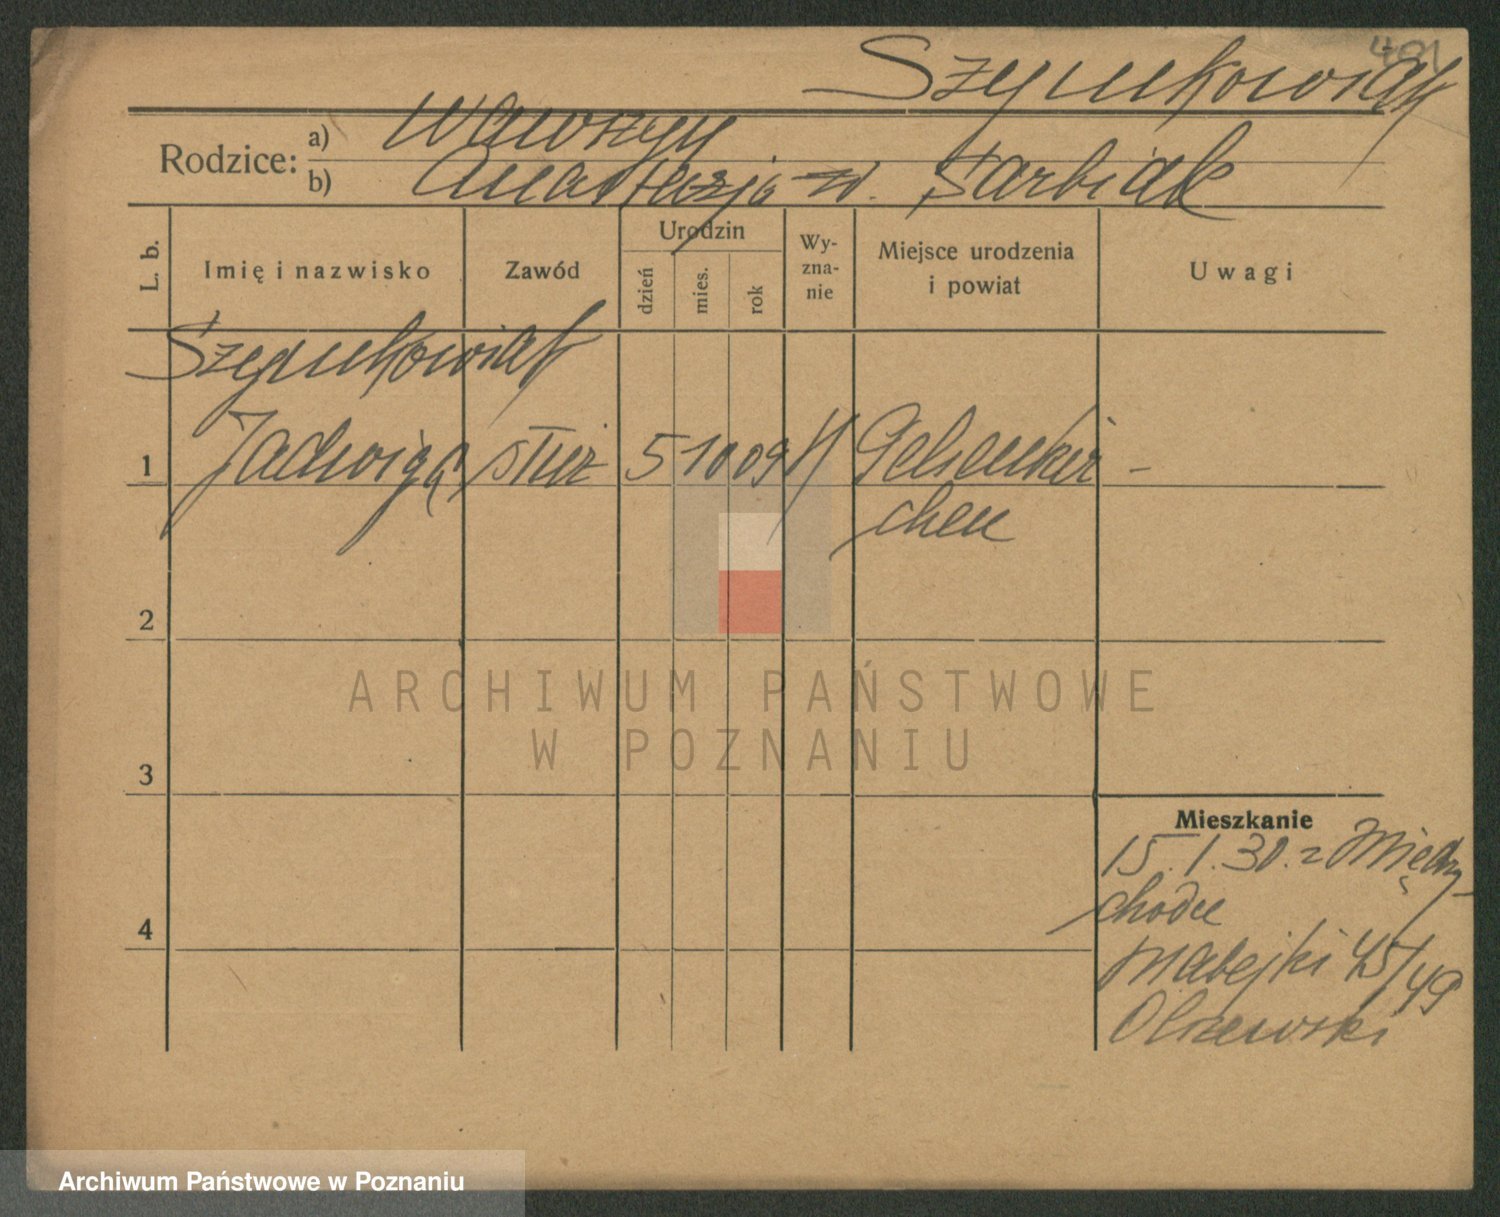 401
Szymkowiak
Rodzice: a) Wawrzyn
b) Anastazja z d. Sarbiak
L. b. Imię i nazwisko Zawód Urodzin dzień mies. rok Wyznanie Miejsce urodzenia i powiat Uwagi
Szymkowiak
1 Jadwiga służ 5 10 09 Gelsenkir -
chen
2
3
4
Mieszkanie
15.1.30. z Między-
chodu
Matejki 45/49
Olszewski
ARCHIWUM PAŃSTWOWE
W POZNANIU
Archiwum Państwowe w Poznaniu